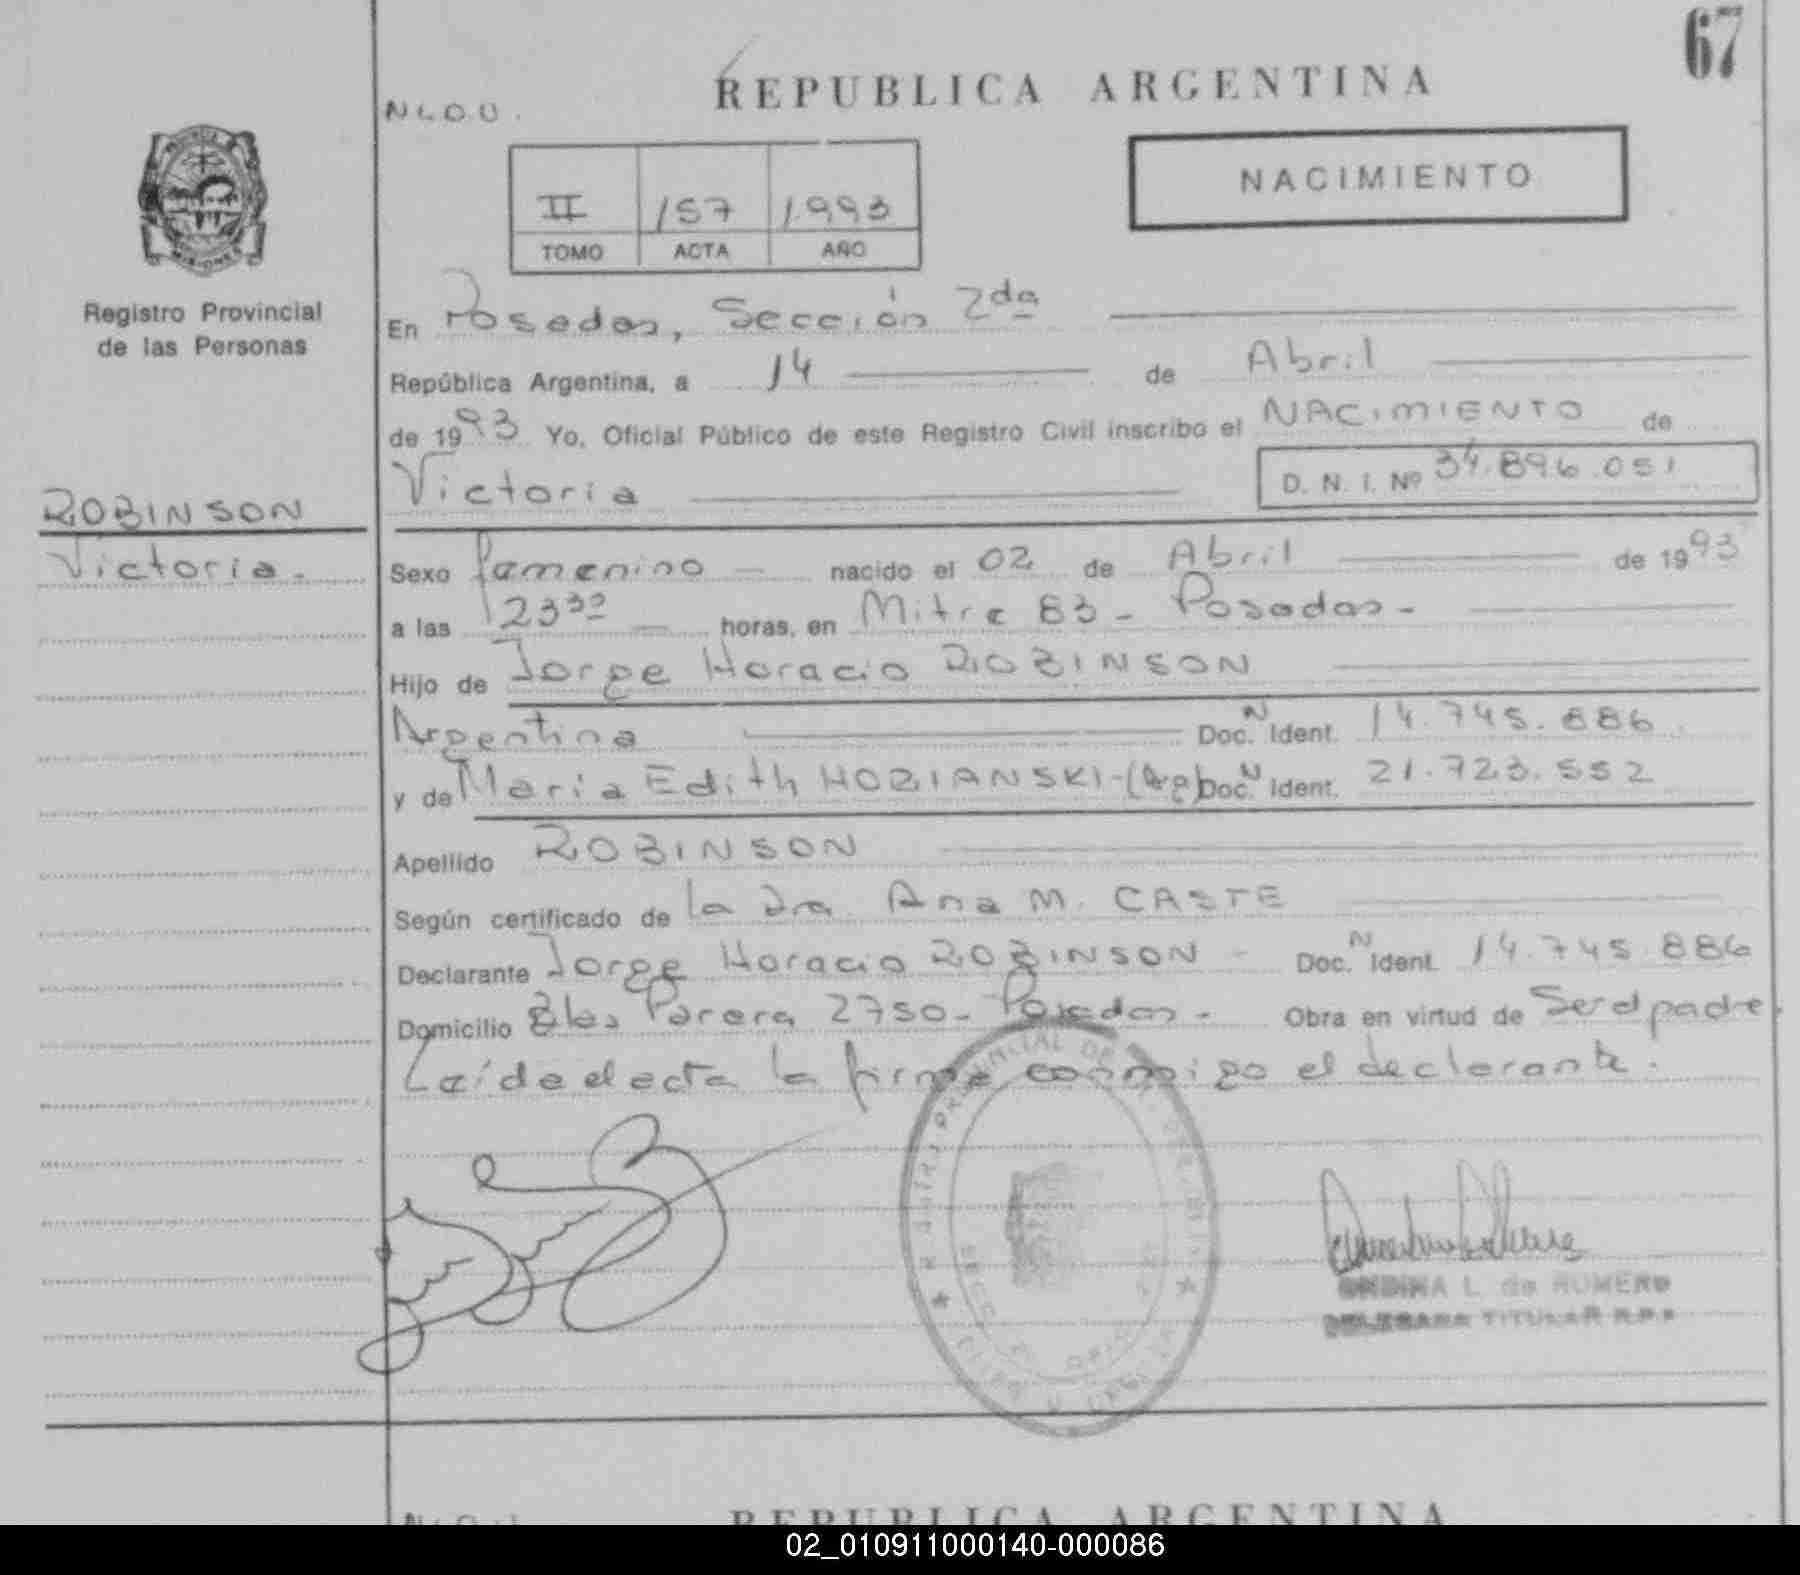 67
REPUBLICA ARGENTINA
N.L.O.U.
NACIMIENTO
II 157 1.993
TOMO ACTA AÑO
MISIONES
Registro Provincial
de las Personas
En Posadas, Sección 2da
República Argentina, a 14 de Abril
de 1993 Yo, Oficial Público de este Registro Civil inscribo el NACIMIENTO de
Victoria D. N. I. Nº 34.896.051
ROBINSON
Victoria.
Sexo femenino nacido el 02 de Abril de 1993
a las 23 30 horas, en Mitre 83 - Posadas -
Hijo de Jorge Horacio ROBINSON
Argentina Doc. N Ident. 14.745.886
y de María Edith HOZIANSKI-(Arg) Doc. N Ident. 21.723.552
Apellido ROBINSON
Según certificado de la Dra. Ana M. CASTE
Declarante Jorge Horacio ROBINSON - Doc. N Ident. 14.745.886
Domicilio Blas Parera 2750 - Posadas - Obra en virtud de Ser el padre.
Leída el acta la firma conmigo el declarante.
L. de ROMERO
TITULAR R.P.P.
REPUBLICA ARGENTINA
02_010911000140-000086